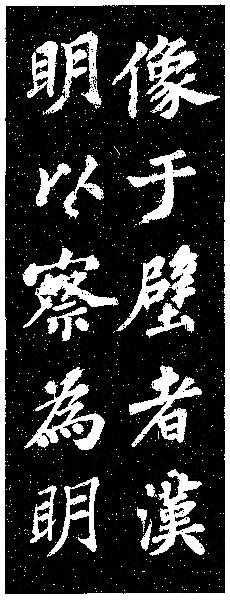 像于壁者漢
明以察為明